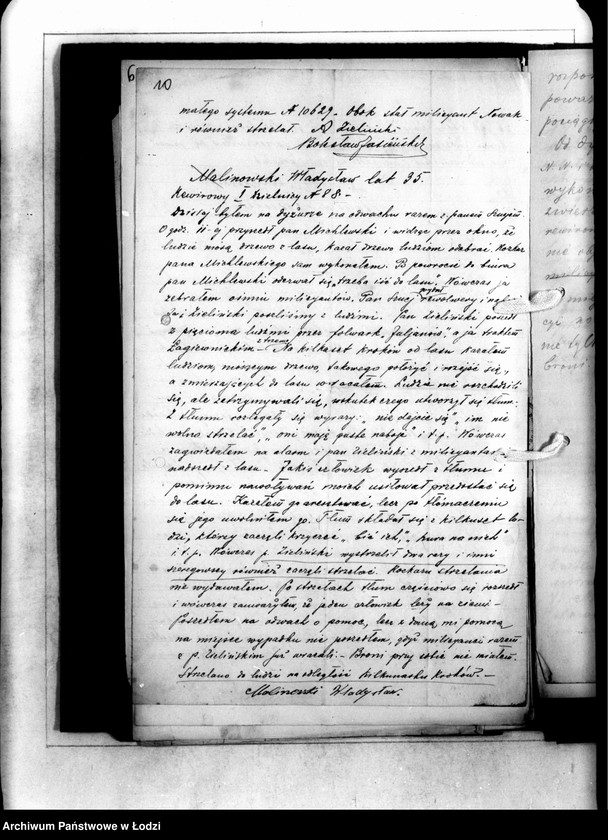 6
10
małego systemu № 10629. Obok stał milicyant Nowak
i również strzelał. A Zieliński
Bolesław
Malinowski Władysław lat 35.
Rewirowy I Dzielnicy № 88 –
Dzisiaj byłem na dyżurze na odwachu razem z panem
O godz. 11-ej przyszedł pan Michlewski i widząc przez okno, że
ludzie niosą drzewo z lasu, kazał drzewo ludziom odebrać. Rozkaz
pana Michlewskiego sam wykonałem. Po powrocie do biura
pan Michlewski odezwał się, trzeba iść do lasu". Wówczas ja
zebrałem ośmiu milicyantów. Pan wydał rewolwery i
i Zieliński poszliśmy z ludźmi. Pan Zieliński poszedł
z pięcioma ludźmi przez folwark „Juljanów" a ja traktem
Łagiewnickim – z trzema. Na kilkaset kroków od lasu kazałem
ludziom, niosącym drzewo, takowego położyć i rozejść się,
a zmierzających do lasu wracałem. Ludzie nie rozchodzili
się, ale zatrzymywali się, wskutek czego utworzył się tłum.
Z tłumu rozlegały się wyrazy: „nie dajcie się", „im nie
wolno strzelać", „oni mają puste naboje" i t.p. Wówczas
zagwizdałem na alarm i pan Zieliński z milicyantami
nadszedł z lasu. Jakiś człowiek wyszedł z tłumu i
pomimu nawoływań moich usiłował przedostać się
do lasu. Kazałem go aresztować, lecz po tłómaczeniu
się jego uwolniłem go. Tłum składał się z kilkuset lu-
dzi, którzy zaczęli krzyczeć „bić ich", „hura na nich"
i t.p. Wówczas p. Zieliński wystrzelił dwa razy i inni
szeregowcy również zaczęli strzelać. Rozkazu strzelania
nie wydawałem. Po strzałach tłum częściowo się rozszedł
i wówczas zauważyłem, że jeden człowiek leży na ziemi.
Poszedłem na odwach o pomoc, lecz z daną mi pomocą
na miejsce wypadku nie poszedłem, gdyż milicyanci razem
z p. Zielińskim już wracali. – Broni przy sobie nie miałem.
Strzelano do ludzi na odległość kilkunastu kroków. –
Malinowski Władysław.
Archiwum Państwowe w Łodzi